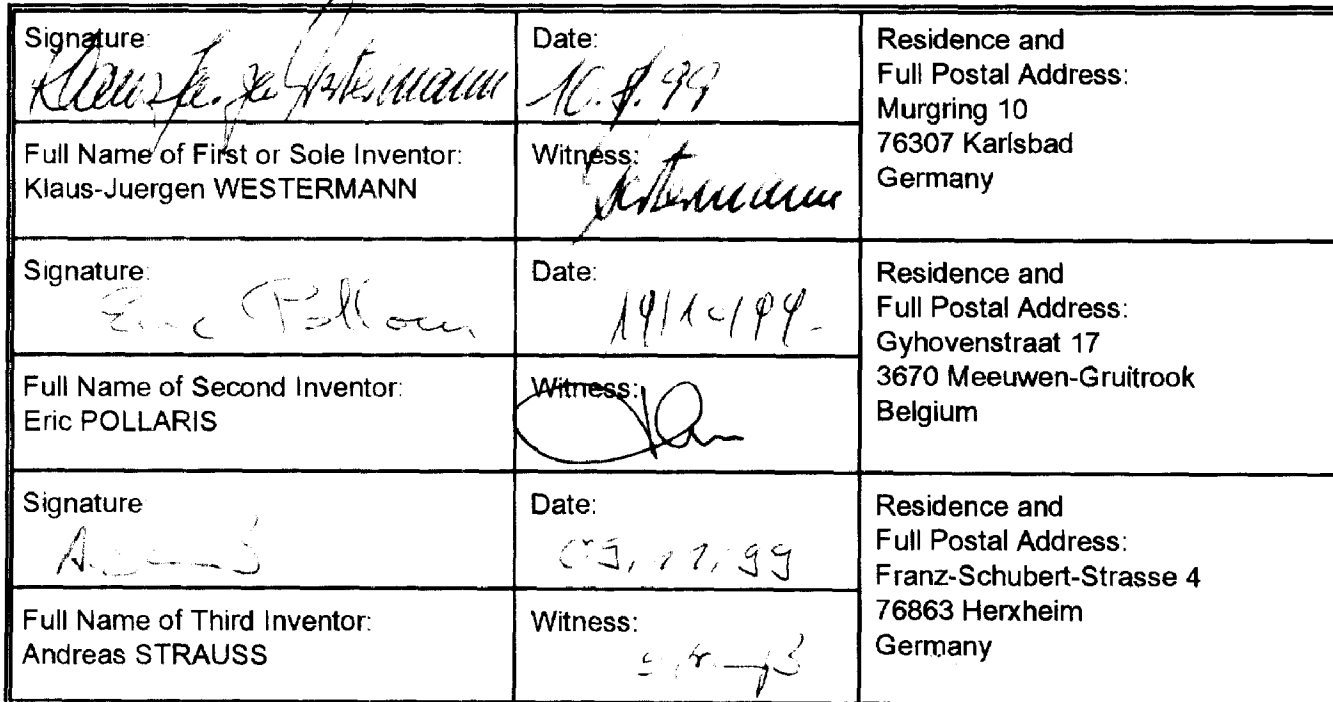 Signature:
Klaus-Juergen Westermann
Date:
Residence and
Full Postal Address:
Murgring 10
76307 Karlsbad
Germany
Full Name of First or Sole Inventor:
Klaus-Juergen WESTERMANN
Witness:
Westermann
Signature:
Eric Pollaris
Date:
19/10/99
Residence and
Full Postal Address:
Gyhovenstraat 17
3670 Meeuwen-Gruitrook
Belgium
Full Name of Second Inventor:
Eric POLLARIS
Witness:
Signature
Date:
09.11.99
Residence and
Full Postal Address:
Franz-Schubert-Strasse 4
76863 Herxheim
Germany
Full Name of Third Inventor:
Andreas STRAUSS
Witness: